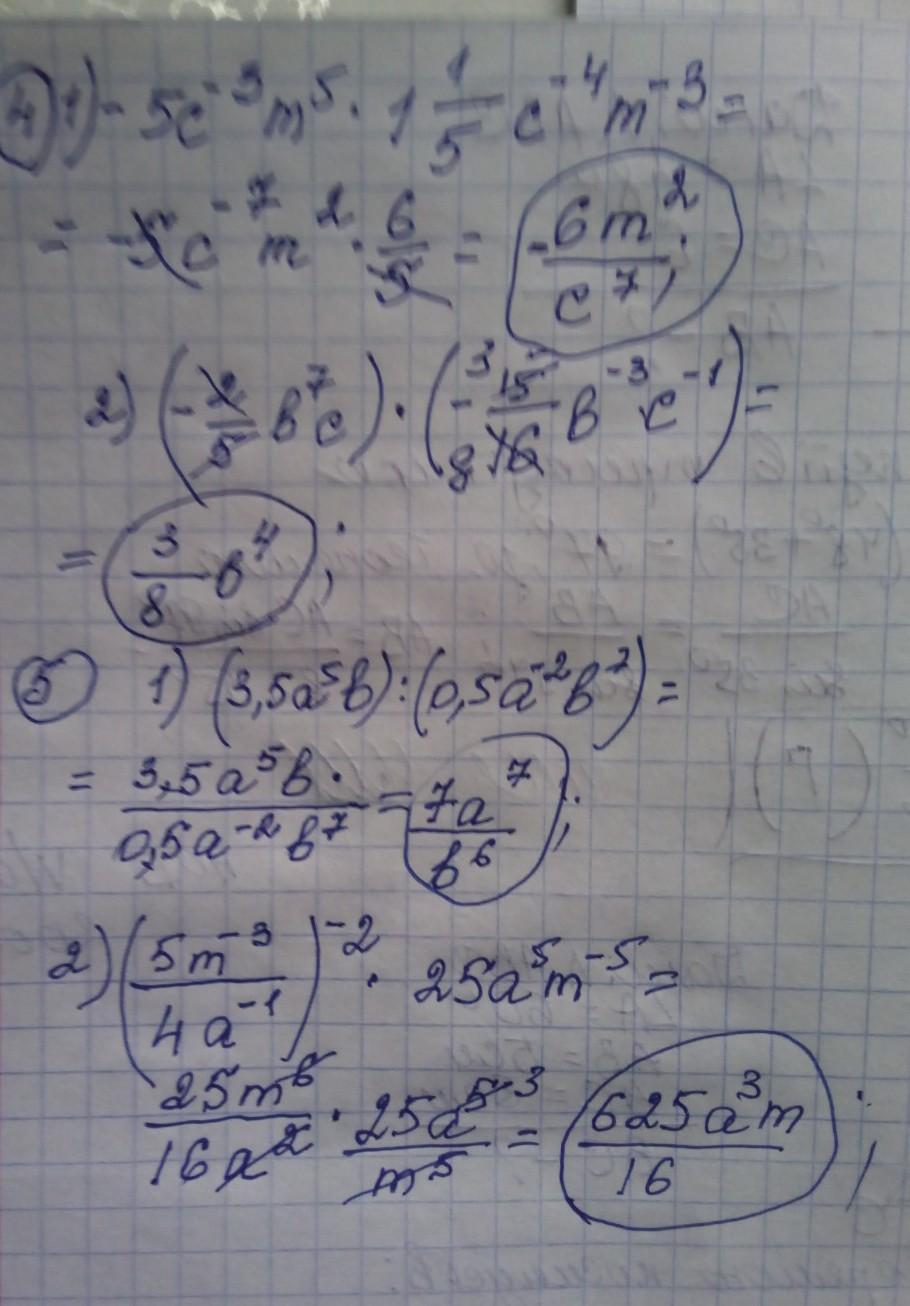 4) 1) - 5c⁻³m⁵ · 1 1/5 c⁻⁴m⁻³ =
= -5c⁻⁷m² · 6/5 = -6m²/c⁷;
2) (-2/5 в⁷c) · (-15/16 в⁻³c⁻¹) =
= 3/8 в⁴;
5 1) (3,5a⁵b) : (0,5a⁻²b⁷) =
= 3,5a⁵b/0,5a⁻²b⁷ = 7a⁷/b⁶;
2) (5m⁻³/4a⁻¹)⁻² · 25a⁵m⁻⁵ =
25m⁶/16a² · 25a⁵ ³/m⁵ = 625a³m/16;